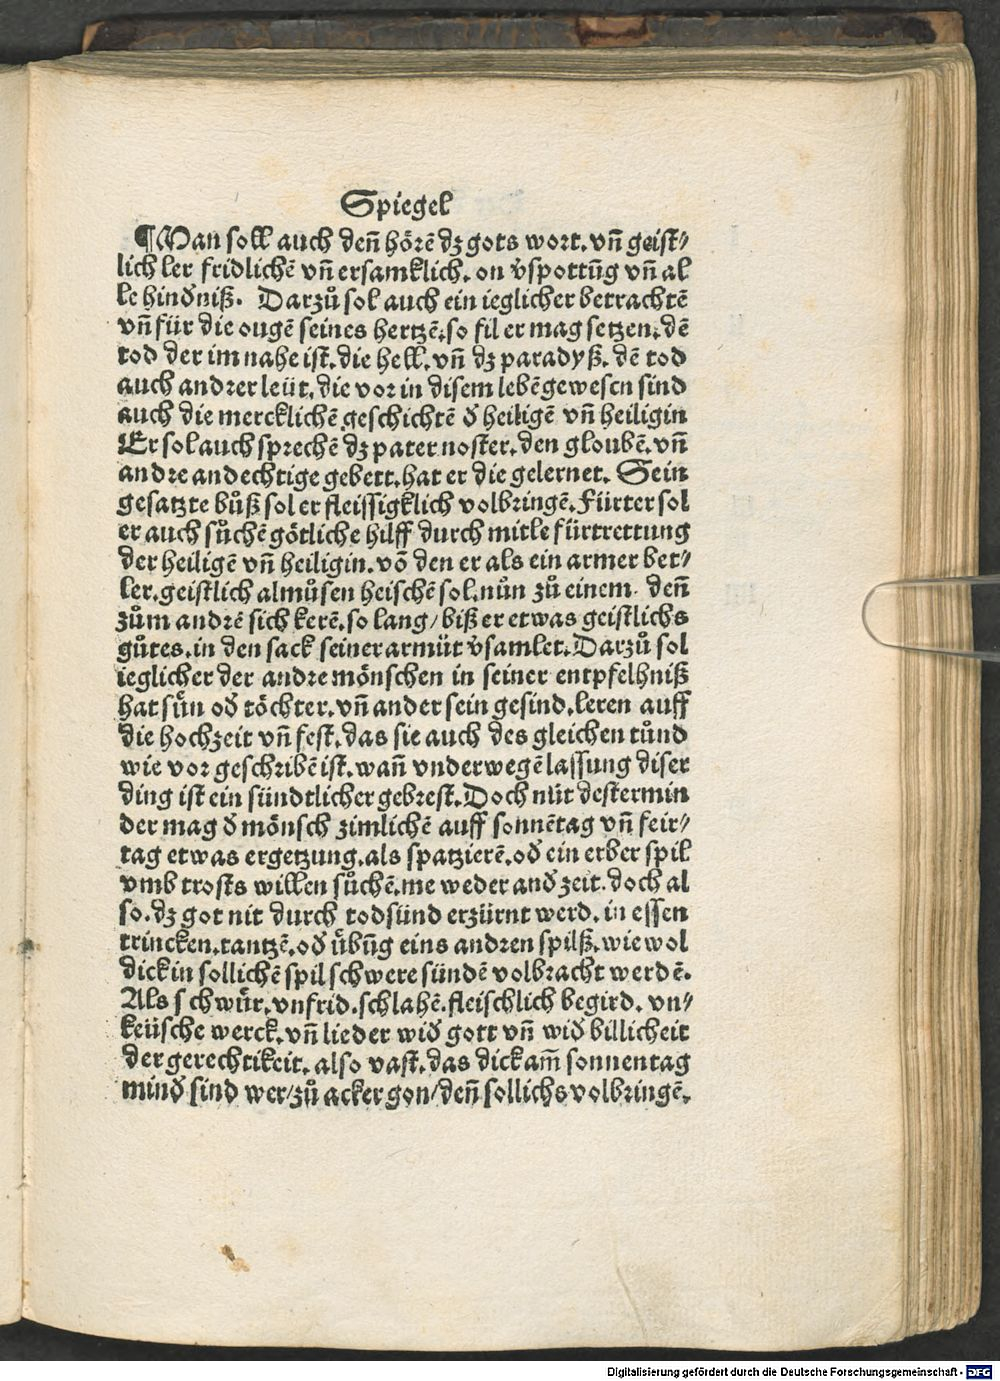 Spiegel
¶Man soll auch deñ hörē dz gots wort. vñ geist⸗
lich ler fridlichē vñ ersamklich. on v̓spottūg vñ al
le hindniß. Darzů sol auch ein ieglicher betrachtē
vñ für die ougē seines hertzē. so fil er mag setzen. dē
tod der im nahe ist. die hell. vñ dz paradyß. dē tod
auch andrer leüt. die vor in disem lebē gewesen sind
auch die mercklichē geschichtē d̓ heiligē vñ heiligin
Er sol auch sprechē dz pater noster. den gloubē. vñ
andre andechtige gebett. hat er die gelernet. Sein
gesatzte bůß sol er fleissigklich volbringē. Fürter sol
er auch sůchē götliche hilff durch mitle fürtrettung
der heiligē vñ heiligin. vō den er als ein armer bet⸗
ler. geistlich almůsen heischē sol. nůn zů einem. deñ
zům andrē sich kerē. so lang / biß er etwas geistlichs
gůtes. in den sack seiner armüt v̓samlet. Darzů sol
ieglicher der andre mönschen in seiner entpfelhniß
hat sün od̓ töchter. vñ ander sein gesind. leren auff
die hochzeit vñ fest. das sie auch des gleichen tůnd
wie vor geschribē ist. wañ vnderwegē lassung diser
ding ist ein sündtlicher gebrest. Doch nüt destermin
der mag d̓ mönsch zimlichē auff sonnētag vñ feir⸗
tag etwas ergetzung. als spatzierē. od̓ ein erber spil
vmb trosts willen sůchē. me weder and̓ zeit. doch al
so. dz got nit durch todsünd erzürnt werd. in essen
trincken. tantzē. od̓ übūg eins andren spilß. wie wol
dick in sollichē spil schwere sündē volbracht werdē.
Als schwür. vnfrid. schlahē. fleischlich begird. vn⸗
keüsche werck. vñ lieder wid̓ gott vñ wid̓ billicheit
der gerechtikeit. also vast. das dick am̄ sonnentag
mind̓ sind wer / zů acker gon / deñ sollichs volbringē.
Digitalisierung gefördert durch die Deutsche Forschungsgemeinschaft - DFG